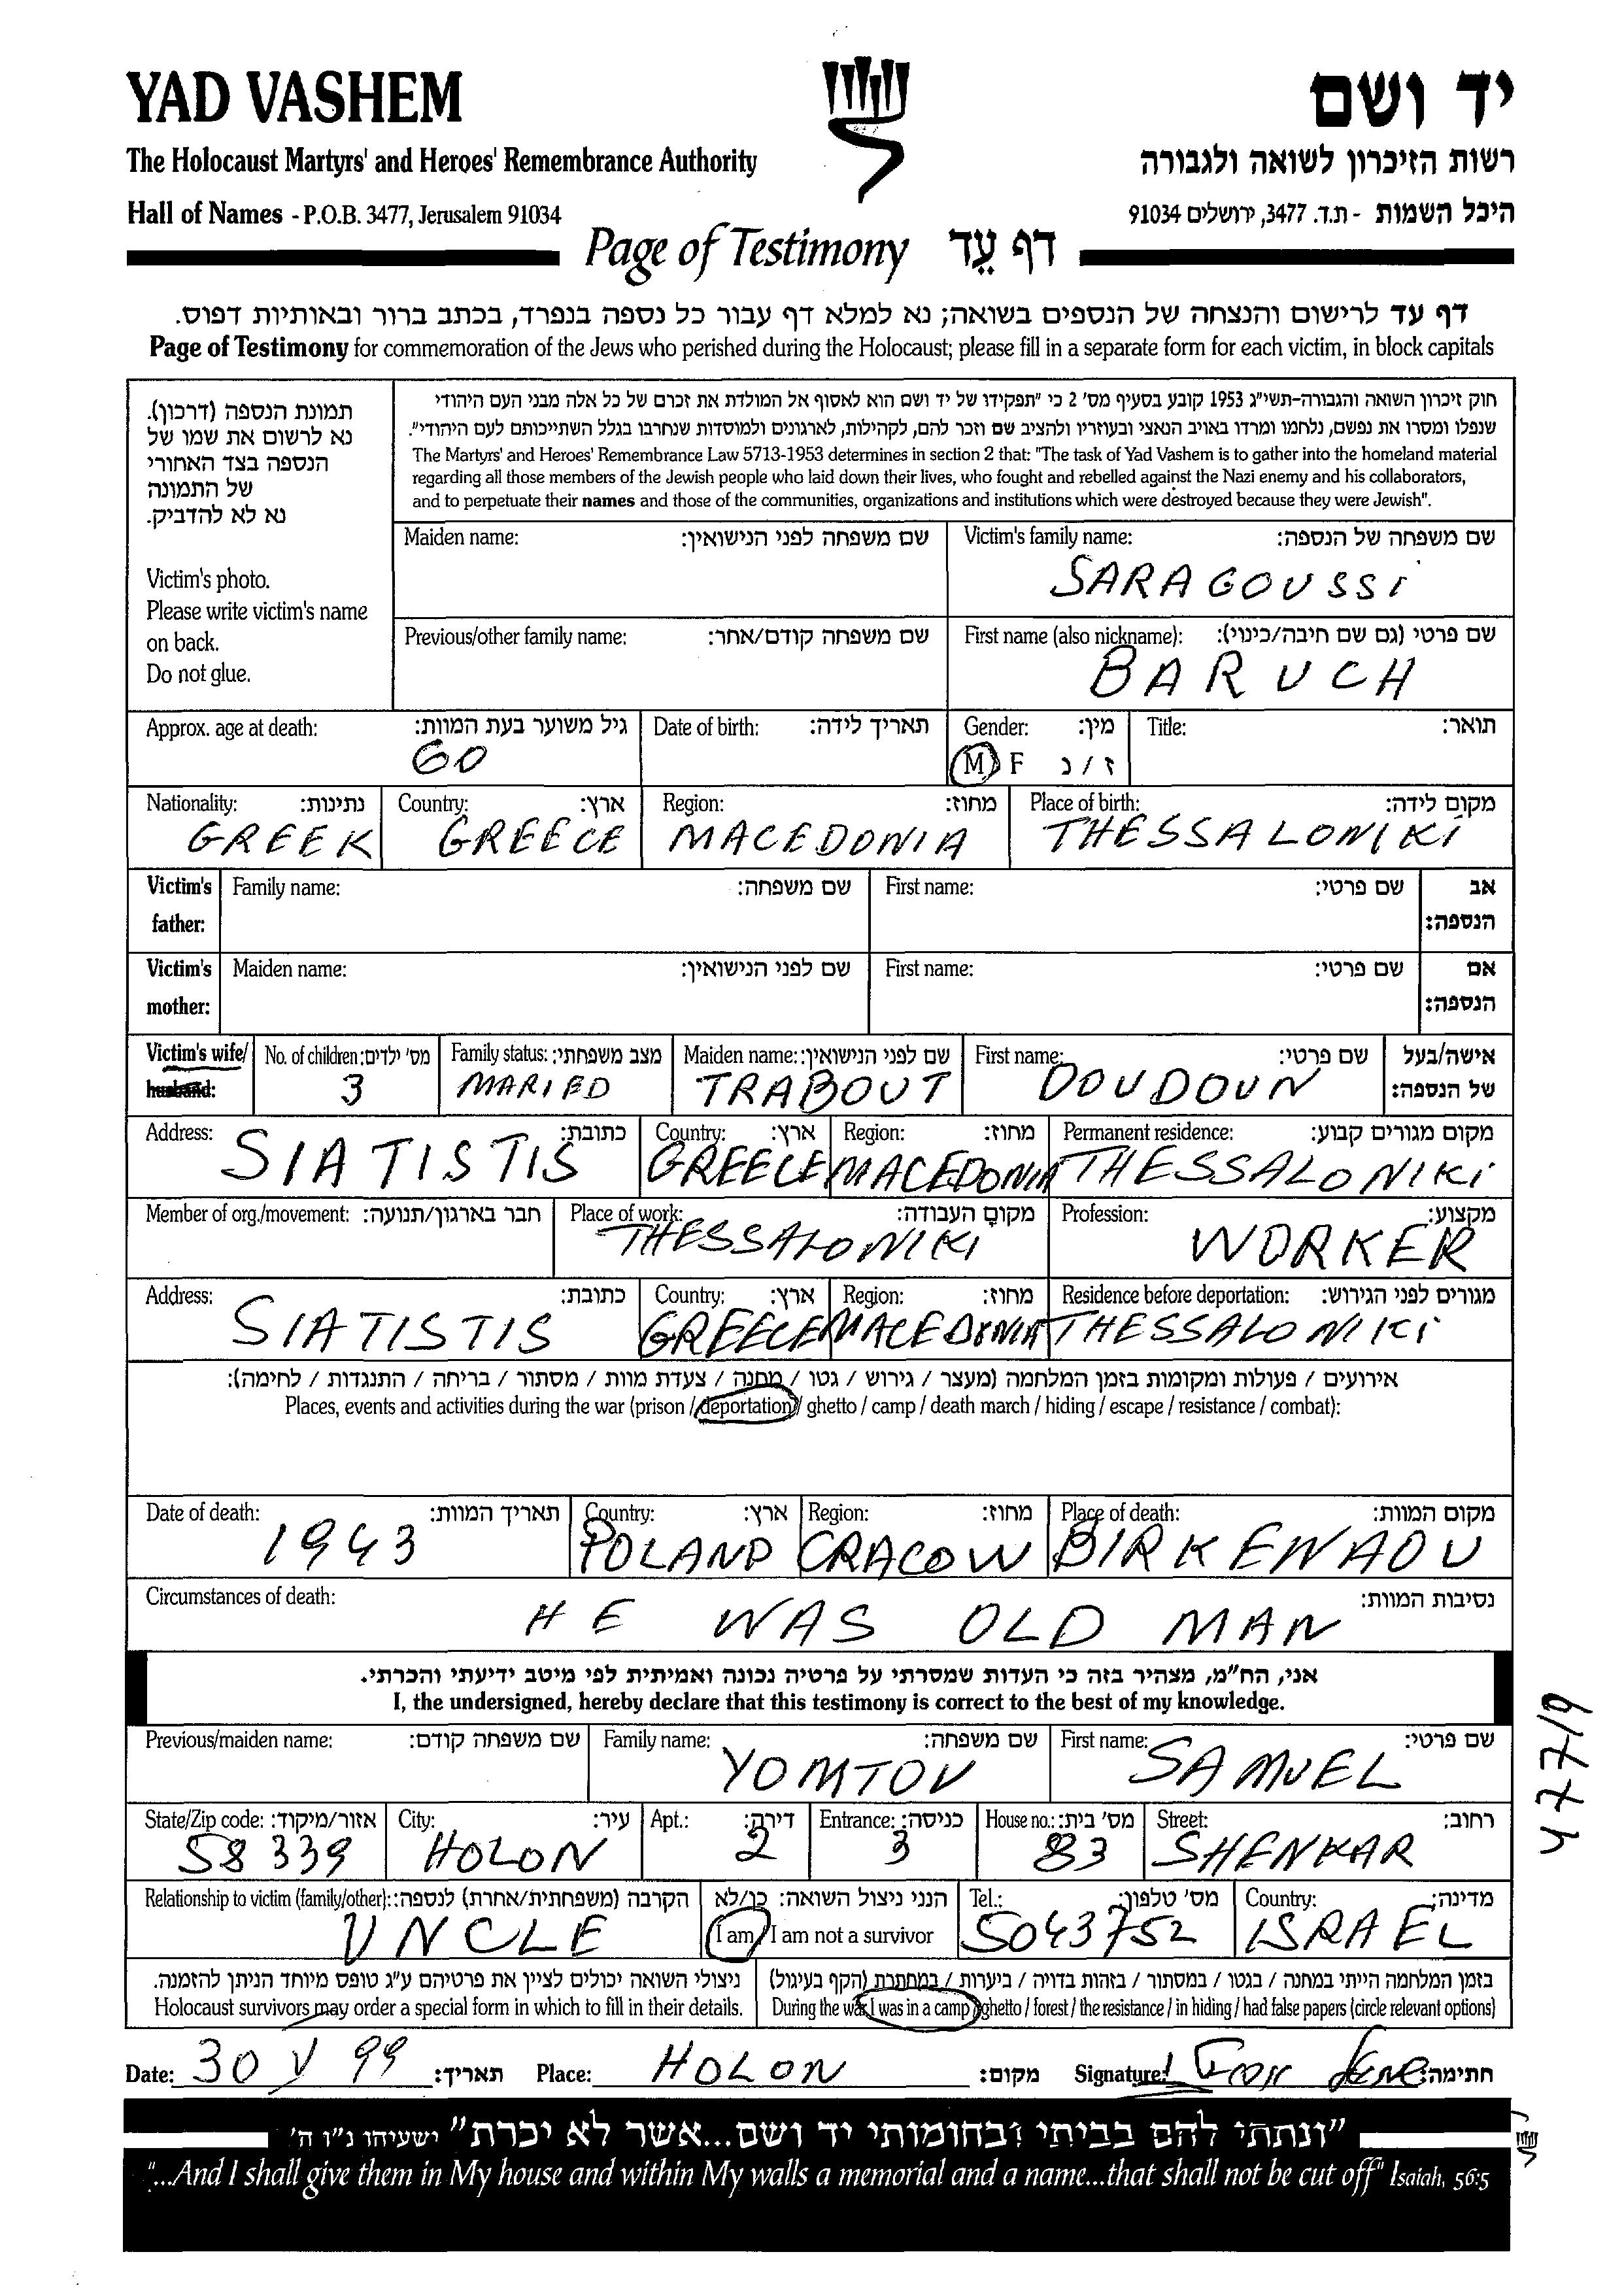 YAD VASHEM
יד ושם
The Holocaust Martyrs' and Heroes' Remembrance Authority
רשות הזיכרון לשואה ולגבורה
Hall of Names - P.O.B. 3477, Jerusalem 91034
היכל השמות - ת.ד. 3477, ירושלים 91034
Page of Testimony דף עֵד
דף עד לרישום והנצחה של הנספים בשואה; נא למלא דף עבור כל נספה בנפרד, בכתב ברור ובאותיות דפוס.
Page of Testimony for commemoration of the Jews who perished during the Holocaust; please fill in a separate form for each victim, in block capitals
תמונת הנספה (דרכון).
נא לרשום את שמו של
הנספה בצד האחורי
של התמונה
נא לא להדביק.
Victim's photo.
Please write victim's name
on back.
Do not glue.
חוק זיכרון השואה והגבורה-תשי"ג 1953 קובע בסעיף מס' 2 כי "תפקידו של יד ושם הוא לאסוף אל המולדת את זכרם של כל אלה מבני העם היהודי
שנפלו ומסרו את נפשם, נלחמו ומרדו באויב הנאצי ובעוזריו ולהציב שם וזכר להם, לקהילות, לארגונים ולמוסדות שנחרבו בגלל השתייכותם לעם היהודי".
The Martyrs' and Heroes' Remembrance Law 5713-1953 determines in section 2 that: "The task of Yad Vashem is to gather into the homeland material
regarding all those members of the Jewish people who laid down their lives, who fought and rebelled against the Nazi enemy and his collaborators,
and to perpetuate their names and those of the communities, organizations and institutions which were destroyed because they were Jewish".
Maiden name: שם משפחה לפני הנישואין:
Victim's family name: שם משפחה של הנספה:
SARAGOUSSI
Previous/other family name: שם משפחה קודם/אחר:
First name (also nickname): שם פרטי (גם שם חיבה/כינוי):
BARUCH
Approx. age at death: גיל משוער בעת המוות:
60
Date of birth: תאריך לידה:
Gender: מין:
M F ז / נ
Title: תואר:
Nationality: נתינות:
GREEK
Country: ארץ:
GREECE
Region: מחוז:
MACEDONIA
Place of birth: מקום לידה:
THESSALONIKI
Victim's father:
Family name: שם משפחה:
First name: שם פרטי:
אב הנספה:
Victim's mother:
Maiden name: שם לפני הנישואין:
First name: שם פרטי:
אם הנספה:
Victim's wife/
husband:
No. of children: מס' ילדים:
3
Family status: מצב משפחתי:
MARIED
Maiden name: שם לפני הנישואין:
TRABOUT
First name: שם פרטי:
DOUDOUN
אישה/בעל
של הנספה:
Address: כתובת:
SIATISTIS
Country: ארץ:
GREECE
Region: מחוז:
MACEDONIA
Permanent residence: מקום מגורים קבוע:
THESSALONIKI
Member of org./movement: חבר בארגון/תנועה:
Place of work: מקום העבודה:
THESSALONIKI
Profession: מקצוע:
WORKER
Address: כתובת:
SIATISTIS
Country: ארץ:
GREECE
Region: מחוז:
MACEDONIA
Residence before deportation: מגורים לפני הגירוש:
THESSALONIKI
אירועים / פעולות ומקומות בזמן המלחמה (מעצר / גירוש / גטו / מחנה / צעדת מוות / מסתור / בריחה / התנגדות / לחימה):
Places, events and activities during the war (prison / deportation / ghetto / camp / death march / hiding / escape / resistance / combat):
Date of death: תאריך המוות:
1943
Country: ארץ:
POLAND
Region: מחוז:
CRACOW
Place of death: מקום המוות:
BIRKENAOU
Circumstances of death: נסיבות המוות:
HE WAS OLD MAN
אני, הח"מ, מצהיר בזה כי העדות שמסרתי על פרטיה נכונה ואמיתית לפי מיטב ידיעתי והכרתי.
I, the undersigned, hereby declare that this testimony is correct to the best of my knowledge.
Previous/maiden name: שם משפחה קודם:
Family name: שם משפחה:
YOMTOV
First name: שם פרטי:
SAMUEL
State/Zip code: אזור/מיקוד:
58339
City: עיר:
HOLON
Apt.: דירה:
2
Entrance: כניסה:
3
House no.: מס' בית:
83
Street: רחוב:
SHENKAR
Relationship to victim (family/other): הקרבה (משפחתית/אחרת) לנספה:
UNCLE
הנני ניצול השואה: כן/לא
I am / I am not a survivor
Tel.: מס' טלפון:
5043752
Country: מדינה:
ISRAEL
ניצולי השואה יכולים לציין את פרטיהם ע"ג טופס מיוחד הניתן להזמנה.
Holocaust survivors may order a special form in which to fill in their details.
בזמן המלחמה הייתי במחנה / בגטו / במסתור / בזהות בדויה / ביערות / במחתרת (הקף בעיגול)
During the war I was in a camp / ghetto / forest / the resistance / in hiding / had false papers (circle relevant options)
Date: 30 V 99 תאריך:
Place: HOLON מקום:
Signature: חתימה:
"ונתתי להם בביתי ובחומותי יד ושם...אשר לא יכרת" ישעיהו נ"ו ה'
"...And I shall give them in My house and within My walls a memorial and a name...that shall not be cut off" Isaiah, 56:5